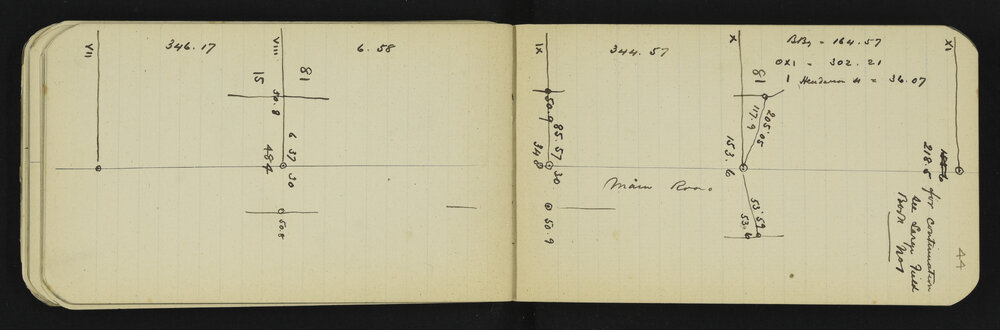 VII
346.17
VIII
6.58
15
18
50.8
6
37
30
484
50.8
IX
344.57
X
BBs = 164.57
OX1 = 302.21
1 Henderson H = 36.07
XI
18
50.9
85.57
348
30.
50.9
205.05
117.9
153.6
Main Road
53.59
53.6
218.5 for continuation
see Large Field
Book No 1
44